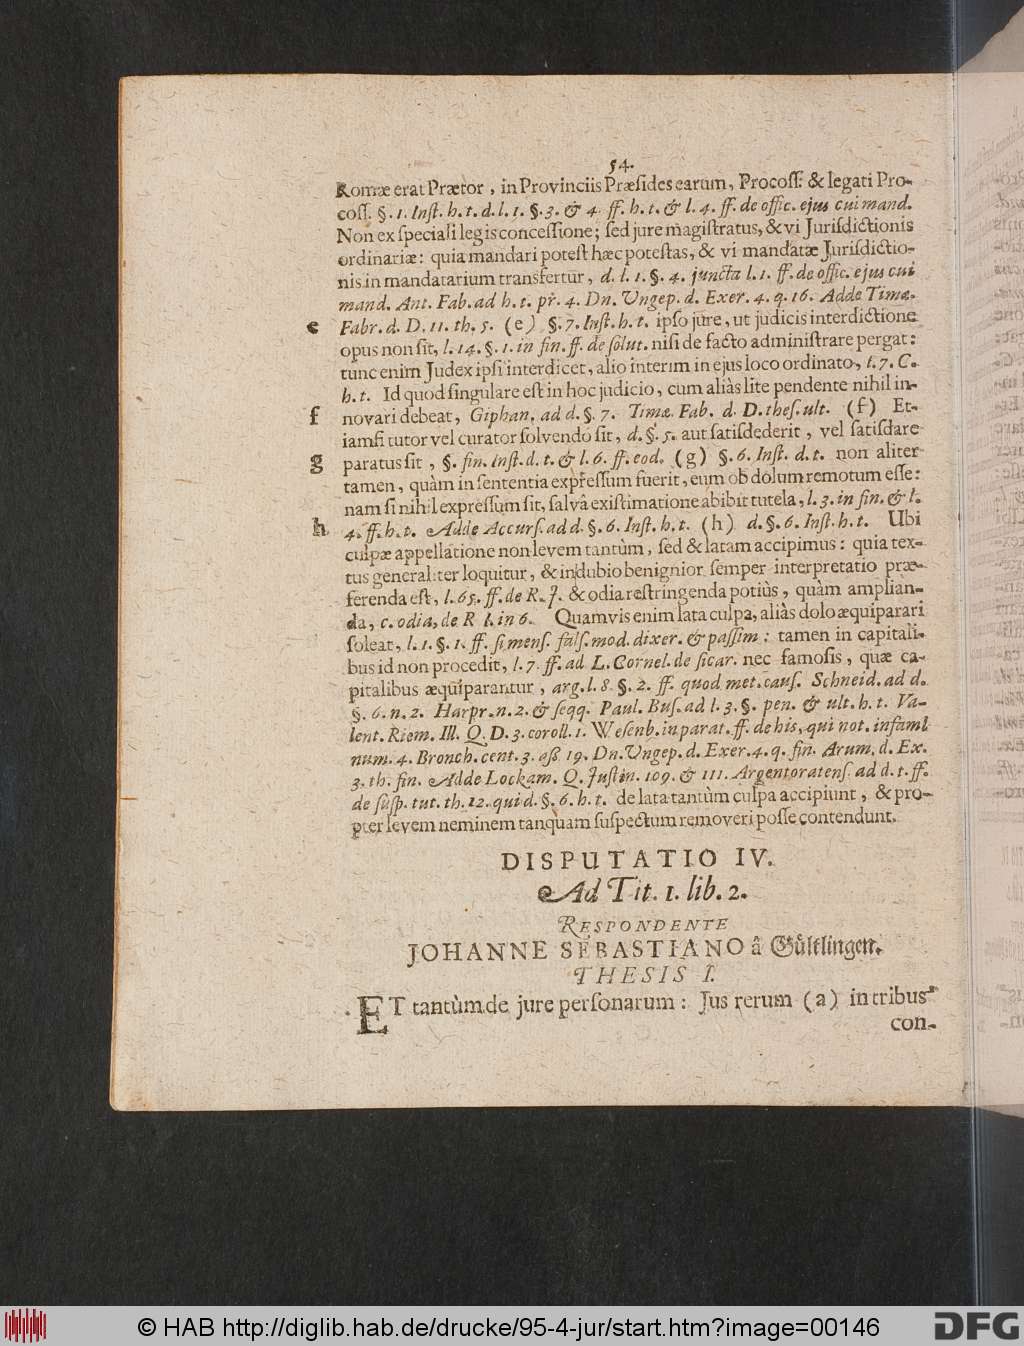 54.
Romæ erat Prætor, in Provinciis Præsides earum, Procoss. & legati Pro-
coss. §. 1. Inst. h. t. d. l. 1. §. 3. & 4. ff. h. t. & l. 4. ff. de offic. ejus cui mand.
Non ex speciali legis concessione; sed jure magistratus, & vi Jurisdictionis
ordinariæ: quia mandari potest hæc potestas, & vi mandatæ Jurisdictio-
nis in mandatarium transfertur, d. l. 1. §. 4. juncta l. 1. ff. de offic. ejus cui
mand. Ant. Fab. ad h. t. pr. 4. Dn. Ungep. d. Exer. 4. q. 16. Adde Timæ.
e Fabr. d. D. 11. th. 5. (e) §. 7. Inst. h. t. ipso jure, ut judicis interdictione
opus non sit, l. 14. §. 1. in fin. ff. de solut. nisi de facto administrare pergat:
tunc enim Judex ipsi interdicet, alio interim in ejus loco ordinato, l. 7. C.
h. t. Id quod singulare est in hoc judicio, cum aliàs lite pendente nihil in-
f novari debeat, Giphan. ad d. §. 7. Timæ. Fab. d. D. thes. ult. (f) Et-
iamsi tutor vel curator solvendo sit, d. §. 5. aut satisdederit, vel satisdare
g paratus sit, §. fin. Inst. d. t. & l. 6. ff. eod. (g) §. 6. Inst. d. t. non aliter
tamen, quàm in sententia expressum fuerit, eum ob dolum remotum esse:
nam si nihil expressum sit, salvâ existimatione abibit tutela, l. 3. in fin. & l.
h 4. ff. h. t. Adde Accurs. ad d. §. 6. Inst. h. t. (h) d. §. 6. Inst. h. t. Ubi
culpæ appellatione non levem tantùm, sed & latam accipimus: quia tex-
tus generaliter loquitur, & in dubio benignior semper interpretatio præ-
ferenda est, l. 65. ff. de R. J. & odia restringenda potiùs, quàm amplian-
da, c. odia, de R. I. in 6. Quamvis enim lata culpa, aliàs dolo æquiparari
soleat, l. 1. §. 1. ff. si mens. fals. mod. dixer. & passim: tamen in capitali-
bus id non procedit, l. 7. ff. ad L. Cornel. de sicar. nec famosis, quæ ca-
pitalibus æquiparantur, arg. l. 8. §. 2. ff. quod met. caus. Schneid. ad d.
§. 6. n. 2. Harpr. n. 2. & seqq. Paul. Bus. ad l. 3. §. pen. & ult. h. t. Va-
lent. Riem. Ill. Q. D. 3. coroll. 1. Wesenb. in parat. ff. de his, qui not. infam.
num. 4. Bronch. cent. 3. aß. 19. Dn. Ungep. d. Exer. 4. q. fin. Arum. d. Ex.
3. th. fin. Adde Lockam. Q. Justin. 109. & 111. Argentoratens. ad d. t. ff.
de susp. tut. th. 12. qui d. §. 6. h. t. de lata tantùm culpa accipiunt, & pro-
pter levem neminem tanquam suspectum removeri posse contendunt.
DISPUTATIO IV.
Ad Tit. 1. lib. 2.
RESPONDENTE
JOHANNE SEBASTIANO â Gültlingen.
THESIS I.
ET tantùm de jure personarum: Jus rerum (a) in tribus
con-
© HAB http://diglib.hab.de/drucke/95-4-jur/start.htm?image=00146
DFG